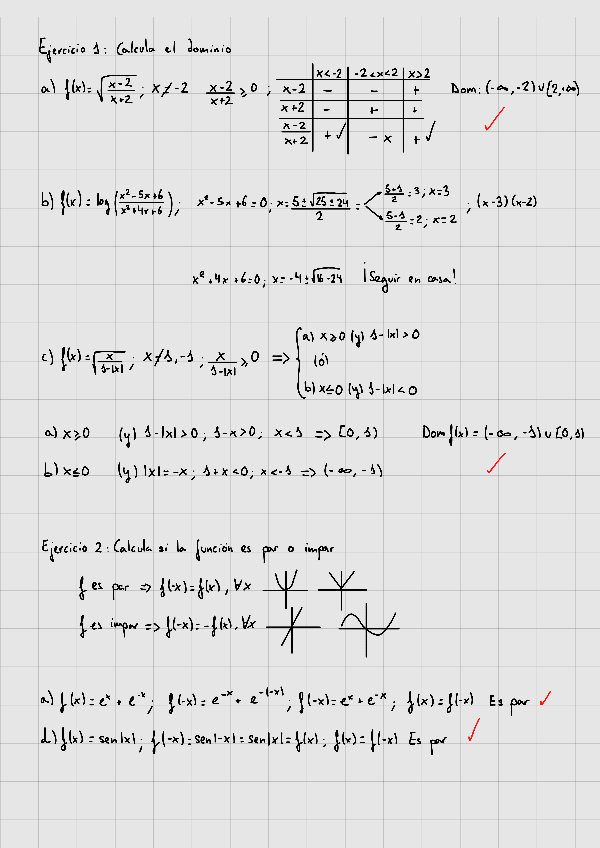 Ejercicio 1: Calcula el dominio
a) f(x)=√((x-2)/(x+2)); x≠-2   (x-2)/(x+2) ≥ 0;
x<-2 | -2<x<2 | x>2
x-2 | - | - | +
x+2 | - | + | +
(x-2)/(x+2) | +✓ | -x | +✓
Dom: (-∞,-2)∪[2,+∞) ✓
b) f(x)=log((x²-5x+6)/(x²+4x+6)); x²-5x+6=0; x=(5±√(25±24))/2= (5+1)/2=3; x=3
(5-1)/2=2; x=2 ; (x-3)(x-2)
x²+4x+6=0; x=-4±√(16-24)   ¡Seguir en casa!
c) f(x)=√(x/(1-|x|)); x≠1,-1; x/(1-|x|) ≥ 0 => { a) x≥0 (y) 1-|x|>0
(ó)
b) x≤0 (y) 1-|x|<0
a) x≥0 (y) 1-|x|>0; 1-x>0; x<1 => [0,1)   Dom f(x)=(-∞,-1)∪[0,1)
b) x≤0 (y) |x|=-x; 1+x<0; x<-1 => (-∞,-1) ✓
Ejercicio 2: Calcula si la función es par o impar
f es par => f(-x)=f(x), ∀x
f es impar => f(-x)=-f(x), ∀x
a) f(x)=eˣ+e⁻ˣ; f(-x)=e⁻ˣ+e⁻⁽⁻ˣ⁾; f(-x)=eˣ+e⁻ˣ; f(x)=f(-x) Es par ✓
d) f(x)=sen|x|; f(-x)=sen|-x|=sen|x|=f(x); f(x)=f(-x) Es par ✓